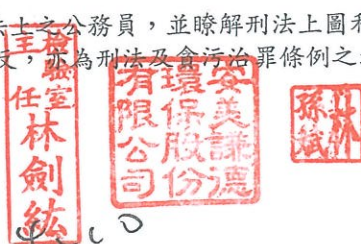 法上之公務員，並瞭解刑法上圖利
文，亦為刑法及貪污治罪條例之
檢驗室
主任
林劍紘
安美謙德
環保股份
有限公司
林
孫斌